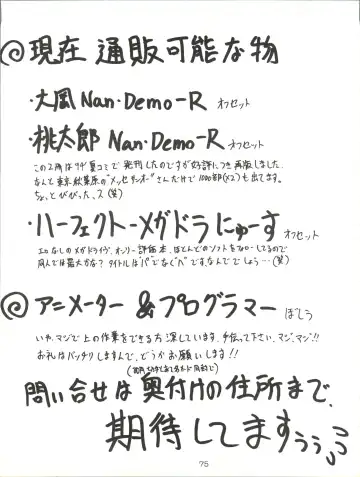 現在 通販可能な物
・大風 Nan・Demo-R オフセット
・桃太郎 Nan・Demo-R オフセット
この2冊は9千夏コミで発刊したのですが好評につき再版しました.
なんと東京秋葉原の"メッセサンオー"さんだけで1000部(x2)も出てます。
ちょっとびびった.ス(笑)
・ハーフェクト-メガドラにゅーす オフセット
エロなしのメガドライヴ.オンリー評価本.ほとんどのソフトをフォローしてるので
同人では最大かな? タイトルは"パ"でなく"ハ"です.なんででしょう…(笑)
アニメーター & プログラマー ぼしう
いや.マジで上の作業をできる方 探しています.手伝って下さい.マジ.マジ!!
お礼はバッチリしますんで.どうかお願いします!!
問い合せは奥付けの住所まで.
期待してますぅぅぅ
75